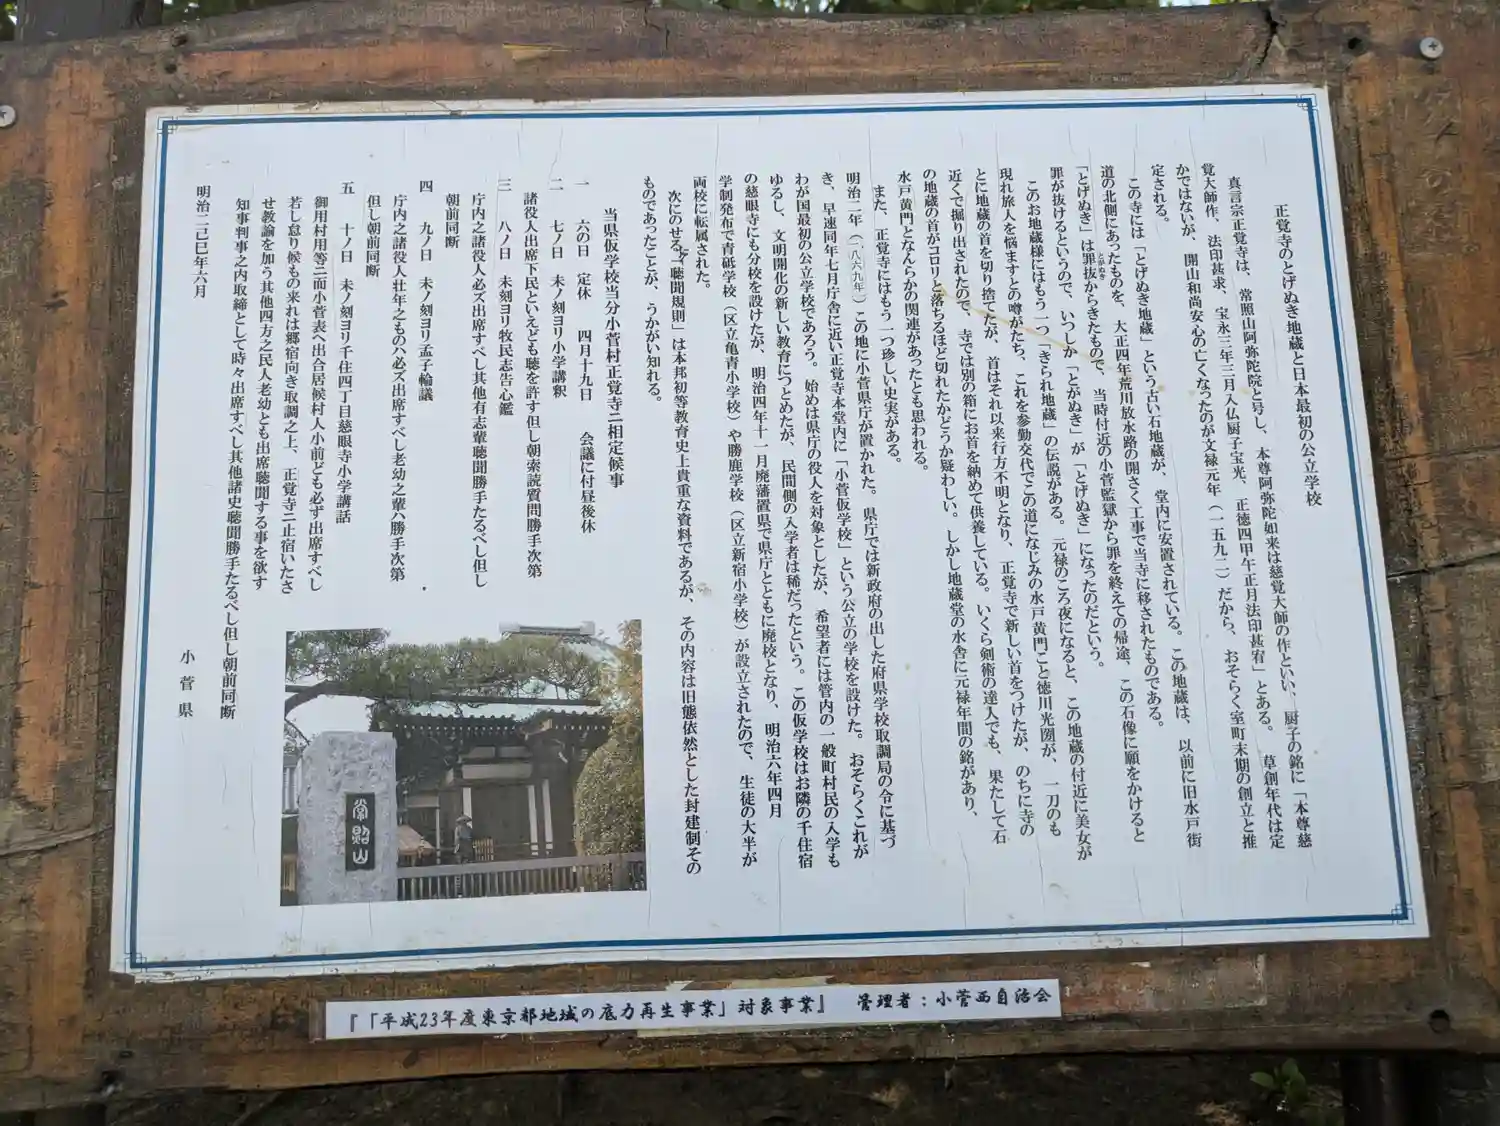 正覚寺のとげぬき地蔵と日本最初の公立学校
真言宗正覚寺は、常照山阿弥陀院と号し、本尊阿弥陀如来は慈覚大師の作といい、厨子の銘に「本尊慈
覚大師作、法印甚求、宝永三年三月入仏厨子宝光、正徳四甲午正月法印甚宥」とある。草創年代は定
かではないが、開山和尚安心の亡くなったのが文禄元年(一五九二)だから、おそらく室町末期の創立と推
定される。
この寺には「とげぬき地蔵」という古い石地蔵が、堂内に安置されている。この地蔵は、以前に旧水戸街
道の北側にあったものを、大正四年荒川放水路の開さく工事で当寺に移されたものである。
「とげぬき」は罪抜からきたもので、当時付近の小菅監獄から罪を終えての帰途、この石像に願をかけると
罪が抜けるというので、いつしか「とがぬき」が「とげぬき」になったのだという。
このお地蔵様にはもう一つ「きられ地蔵」の伝説がある。元禄のころ夜になると、この地蔵の付近に美女が
現れ旅人を悩ますとの噂がたち、これを参勤交代でこの道になじみの水戸黄門こと徳川光圀が、一刀のも
とに地蔵の首を切り捨てたが、首はそれ以来行方不明となり、正覚寺で新しい首をつけたが、のちに寺の
近くで掘り出されたので、寺では別の箱にお首を納めて供養している。いくら剣術の達人でも、果たして石
の地蔵の首がコロリと落ちるほど切れたかどうか疑わしい。しかし地蔵堂の水舎に元禄年間の銘があり、
水戸黄門となんらかの関連があったとも思われる。
また、正覚寺にはもう一つ珍しい史実がある。
明治二年(一八六九年)この地に小菅県庁が置かれた。県庁では新政府の出した府県学校取調局の令に基づ
き、早速同年七月庁舎に近い正覚寺本堂内に「小菅仮学校」という公立の学校を設けた。おそらくこれが
わが国最初の公立学校であろう。始めは県庁の役人を対象としたが、希望者には管内の一般町村民の入学も
ゆるし、文明開化の新しい教育につとめたが、民間側の入学者は稀だったという。この仮学校はお隣の千住宿
の慈眼寺にも分校を設けたが、明治四年十一月廃藩置県で県庁とともに廃校となり、明治六年四月
学制発布で青砥学校(区立亀青小学校)や勝鹿学校(区立新宿小学校)が設立されたので、生徒の大半が
両校に転属された。
次にのせる「聴聞規則」は本邦初等教育史上貴重な資料であるが、その内容は旧態依然とした封建制その
ものであったことが、うかがい知れる。
当県仮学校当分小菅村正覚寺ニ相定候事
一 六の日 定休 四月十九日 会議に付昼後休
二 七ノ日 未ノ刻ヨリ小学講釈
諸役人出席下民といえども聴を許す但し朝索読質問勝手次第
三 八ノ日 未刻ヨリ牧民志告心鑑
庁内之諸役人必ズ出席すべし其他有志輩聴聞勝手たるべし但し
朝前同断
四 九ノ日 未ノ刻ヨリ孟子輪議
庁内之諸役人壮年之ものハ必ズ出席すべし老幼之輩ハ勝手次第
但し朝前同断
五 十ノ日 未ノ刻ヨリ千住四丁目慈眼寺小学講話
御用村用等ニ而小菅表へ出合居候村人小前ども必ず出席すべし
若し怠り候もの来れは郷宿向き取調之上、正覚寺ニ止宿いたさ
せ教諭を加う其他四方之民人老幼とも出席聴聞する事を欲す
知事判事之内取締として時々出席すべし其他諸史聴聞勝手たるべし但し朝前同断
明治二己巳年六月
小菅県
常照山
『「平成23年度東京都地域の底力再生事業」対象事業』 管理者:小菅西自治会